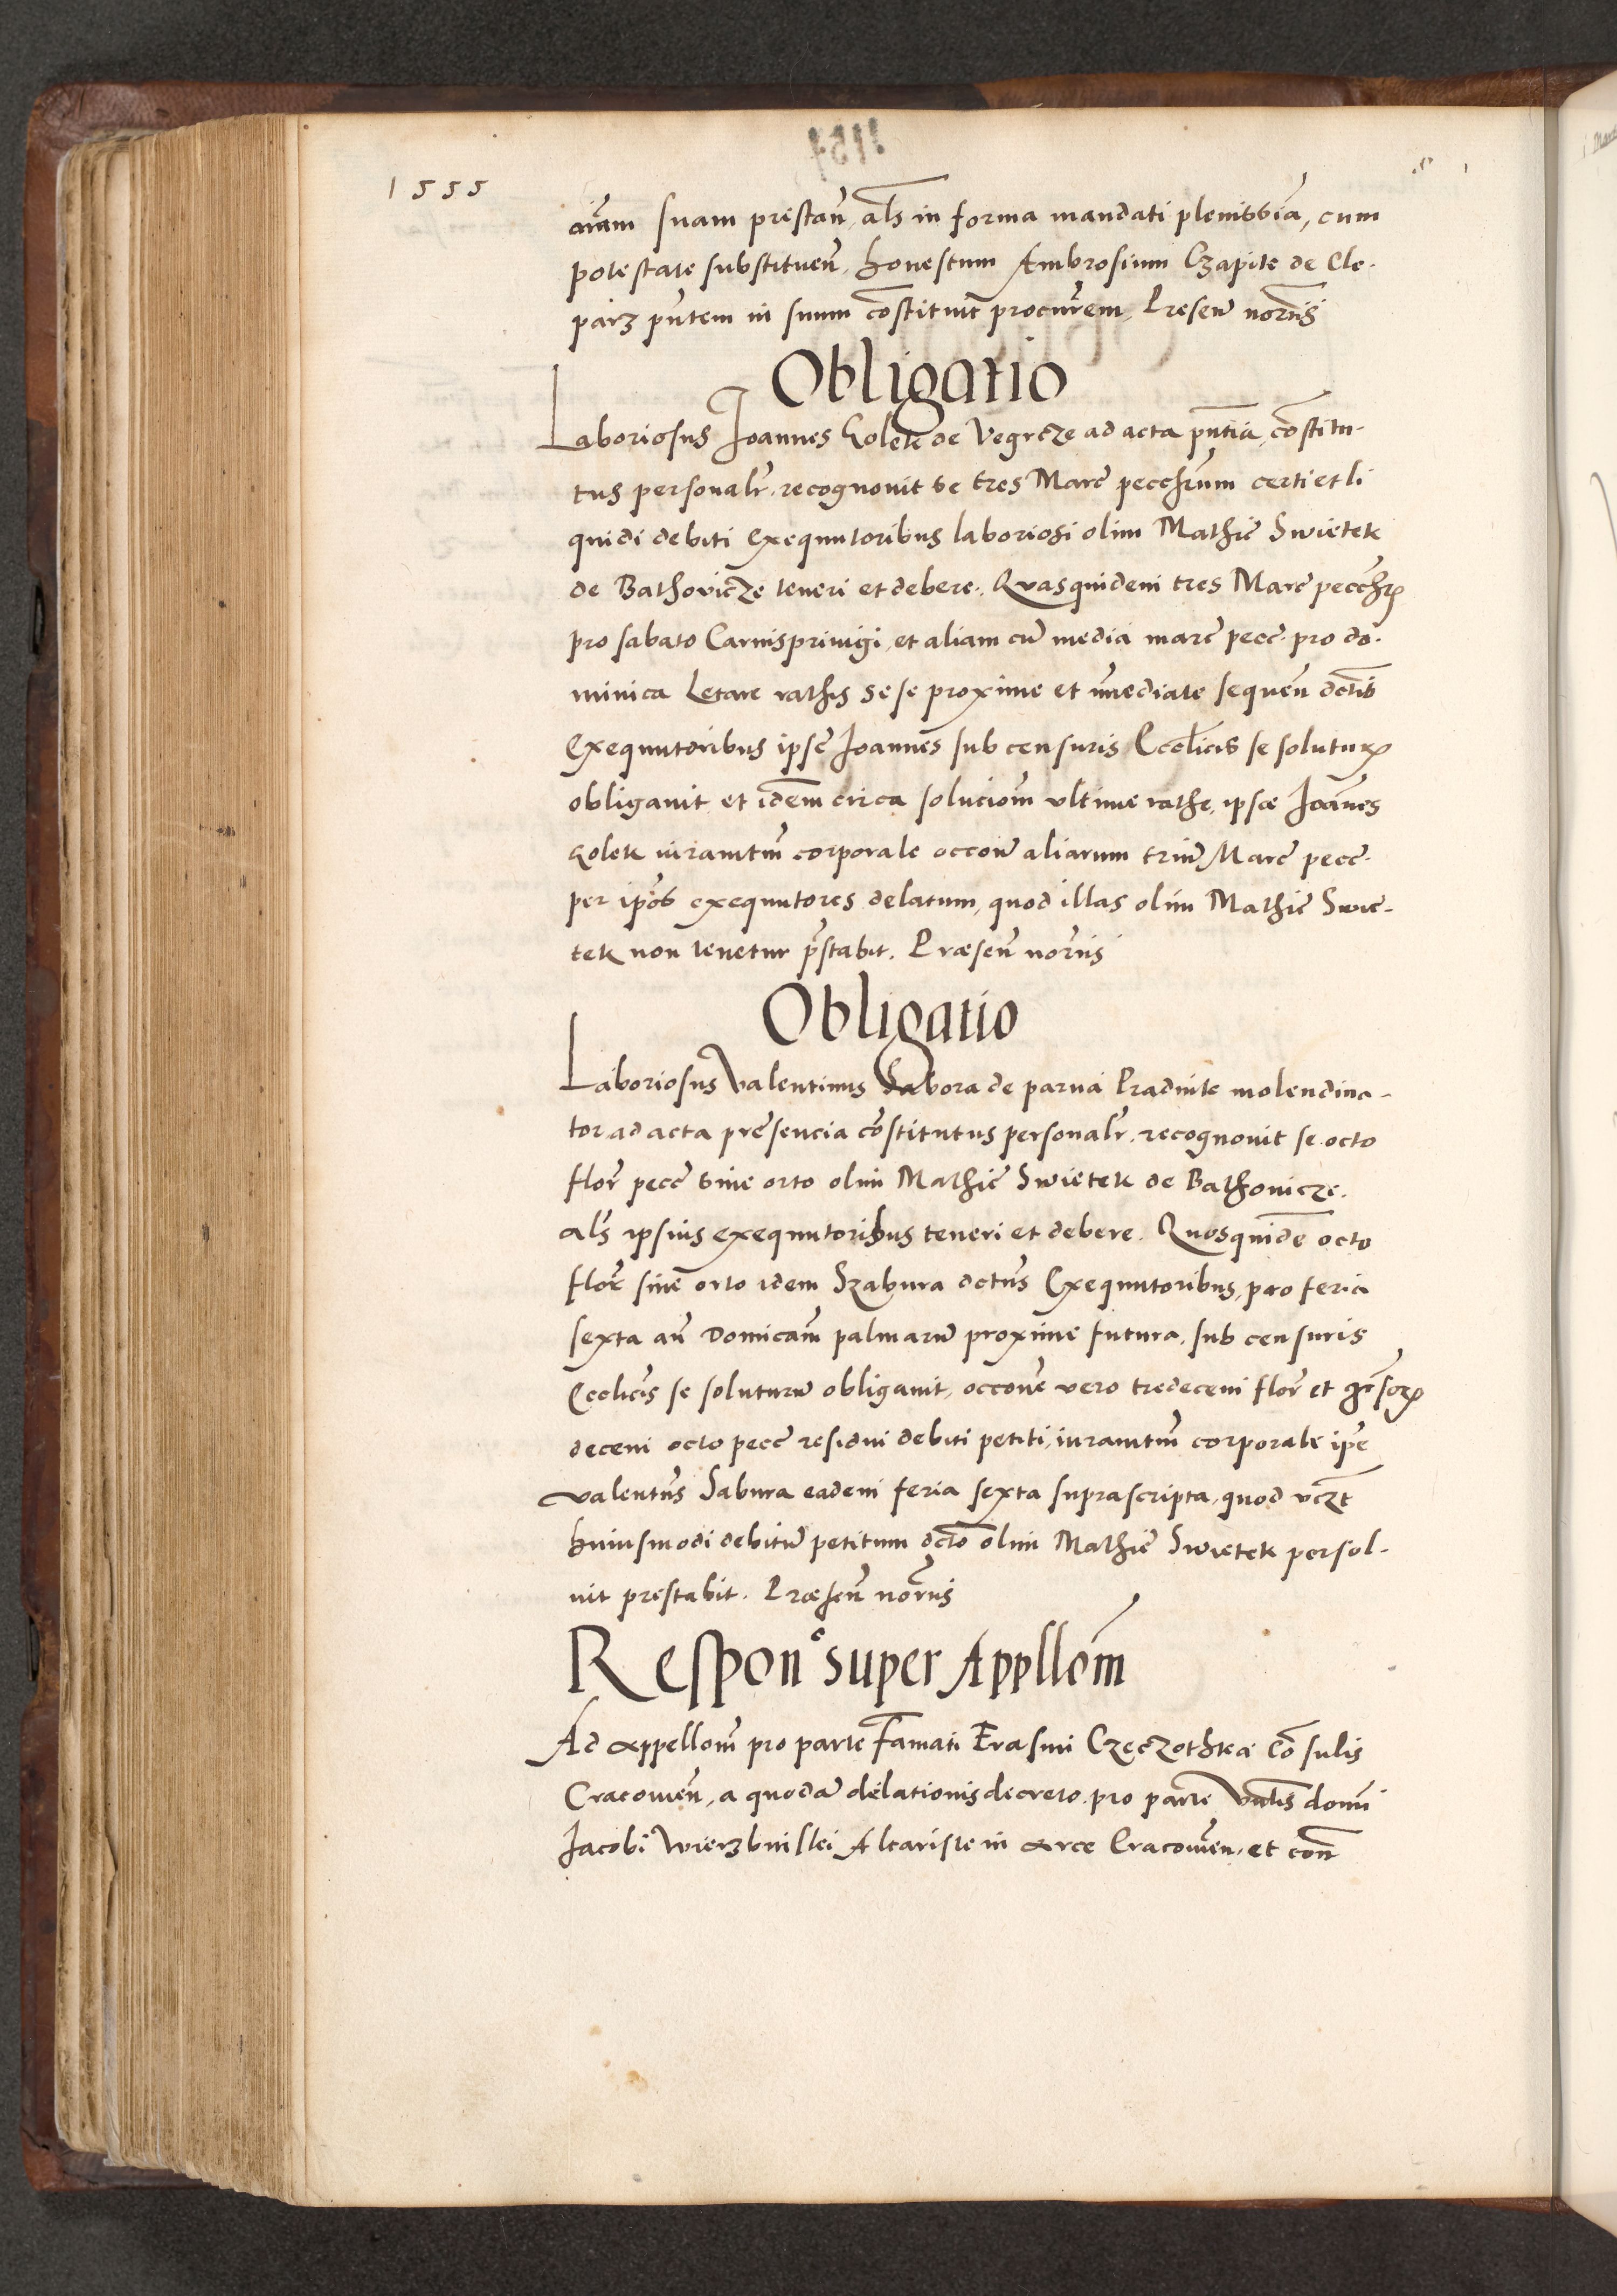 1555
aiam suam prestan̄, als in forma mandati plenissia, cum
potestate substituen̄, honestum Ambrosium Czapite de Cle-
parz pn̄tem in suum constituit procurem, Presen̄ notariis
Obligatio
Laboriosus Joannes Golek de Vegrcze ad acta pn̄tia, constitu-
tus personalr̄. recognovit se tres Marc̄ pecchr̄um certi et li
quidi debiti Exequutoribus laboriosi olim Mathie Swietek
de Bathovicze teneri et debere. Quasquidem tres Marc̄ pecchr̄
pro sabato Carnisprivigi, et aliam cū media marc̄ pecc. pro do-
minica Letare rathis sese proxime et īmediate sequen̄ dictis
Exequutoribus ipse Joannes sub censuris Eccl̄icis se solutur
obligavit et idem circa soluciom̄ ultime rathe, ipse Joannes
Golek iuramtm̄ corporale occone aliarum trium Marc̄ pecc.
per ip̄os exequutores delatum, quod illas olim Mathie Swie-
tek non tenetur p̄stabit. Præsen̄ nor̄iis
Obligatio
Laboriosus Valentinus Sabora de parva Pradnite molendina-
tor ad acta presencia cōstitutus personalr̄. recognovit se octo
flor̄ pecc̄ sine orto olim Mathie Swietek de Bathovicze.
als ipsius exequutoribus teneri et debere. Quosquidē octo
flor̄ sine orto idem Szabura dctūs Exequutoribus, pro feria
sexta an̄ Domicam̄ palmarū proxime futura, sub censuris
Eccl̄icis se soluturū obligavit, occone vero tredecem flor̄ et grossor
decem octo pecc̄ residui debiti petiti, iuramtm̄ corporale ip̄e
Valentn̄s Sabura eadem feria sexta suprascripta, quod vczt
huiusmodi debitū petitum dcto olim Mathie Swietek persol-
vit prestabit. Præsen̄ nor̄iis
Respone super Appllom̄
Ad appellom̄ pro parte Famati Erasmi Czeczothka Cōsulis
Cracovien̄, a quodā delationis decreto pro parte Vn̄lis domi
Jacobi Wierzbnislei Altariste in arce Cracovien. et con̄